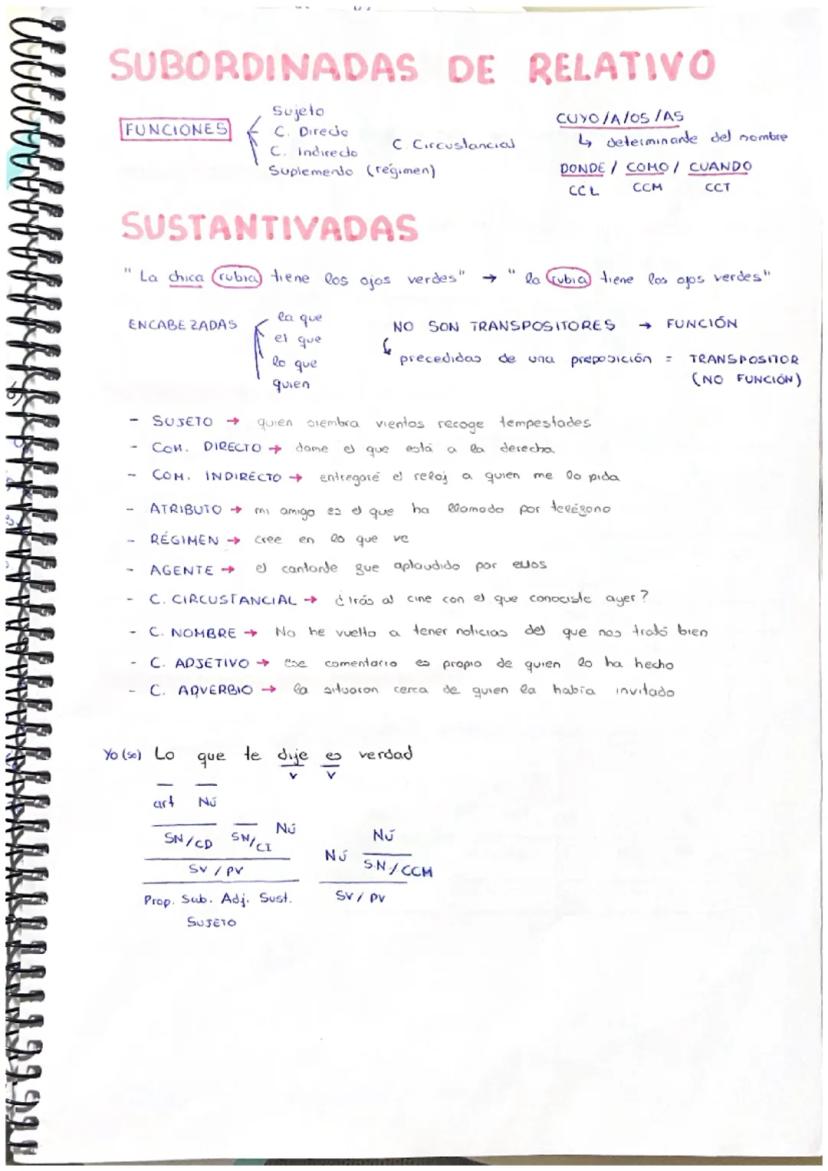 SUBORDINADAS DE RELATIVO
FUNCIONES
Sujeto
C. Directo
C. Indirecto
Suplemento (régimen)
C. Circustancial
CUYO/A/OS/AS
↳ determinante del nombre
DONDE / COMO / CUANDO
CCL CCM CCT
SUSTANTIVADAS
" La chica rubia tiene los ojos verdes" → " la rubia tiene los ojos verdes"
ENCABEZADAS
la que
el que
lo que
quien
NO SON TRANSPOSITORES → FUNCIÓN
precedidas de una preposición = TRANSPOSITOR
(NO FUNCIÓN)
- SUJETO → quien siembra vientos recoge tempestades
- COM. DIRECTO → dame el que está a la derecha
- COM. INDIRECTO → entregaré el reloj a quien me lo pida
- ATRIBUTO → mi amigo es el que ha llamado por teléfono
- RÉGIMEN → cree en lo que ve
- AGENTE → el cantante fue aplaudido por ellos
- C. CIRCUSTANCIAL → ¿irás al cine con el que conociste ayer?
- C. NOMBRE → No he vuelto a tener noticias del que nos trató bien
- C. ADJETIVO → ese comentario es propio de quien lo ha hecho
- C. ADVERBIO → la situaron cerca de quien la había invitado
Yo (so) Lo que te dije es verdad
V V
art Nú
SN/CD SN/CI Nú
Nú
Nú SN/CCM
SV / PV
SV / PV
Prop. Sub. Adj. Sust.
SUJETO